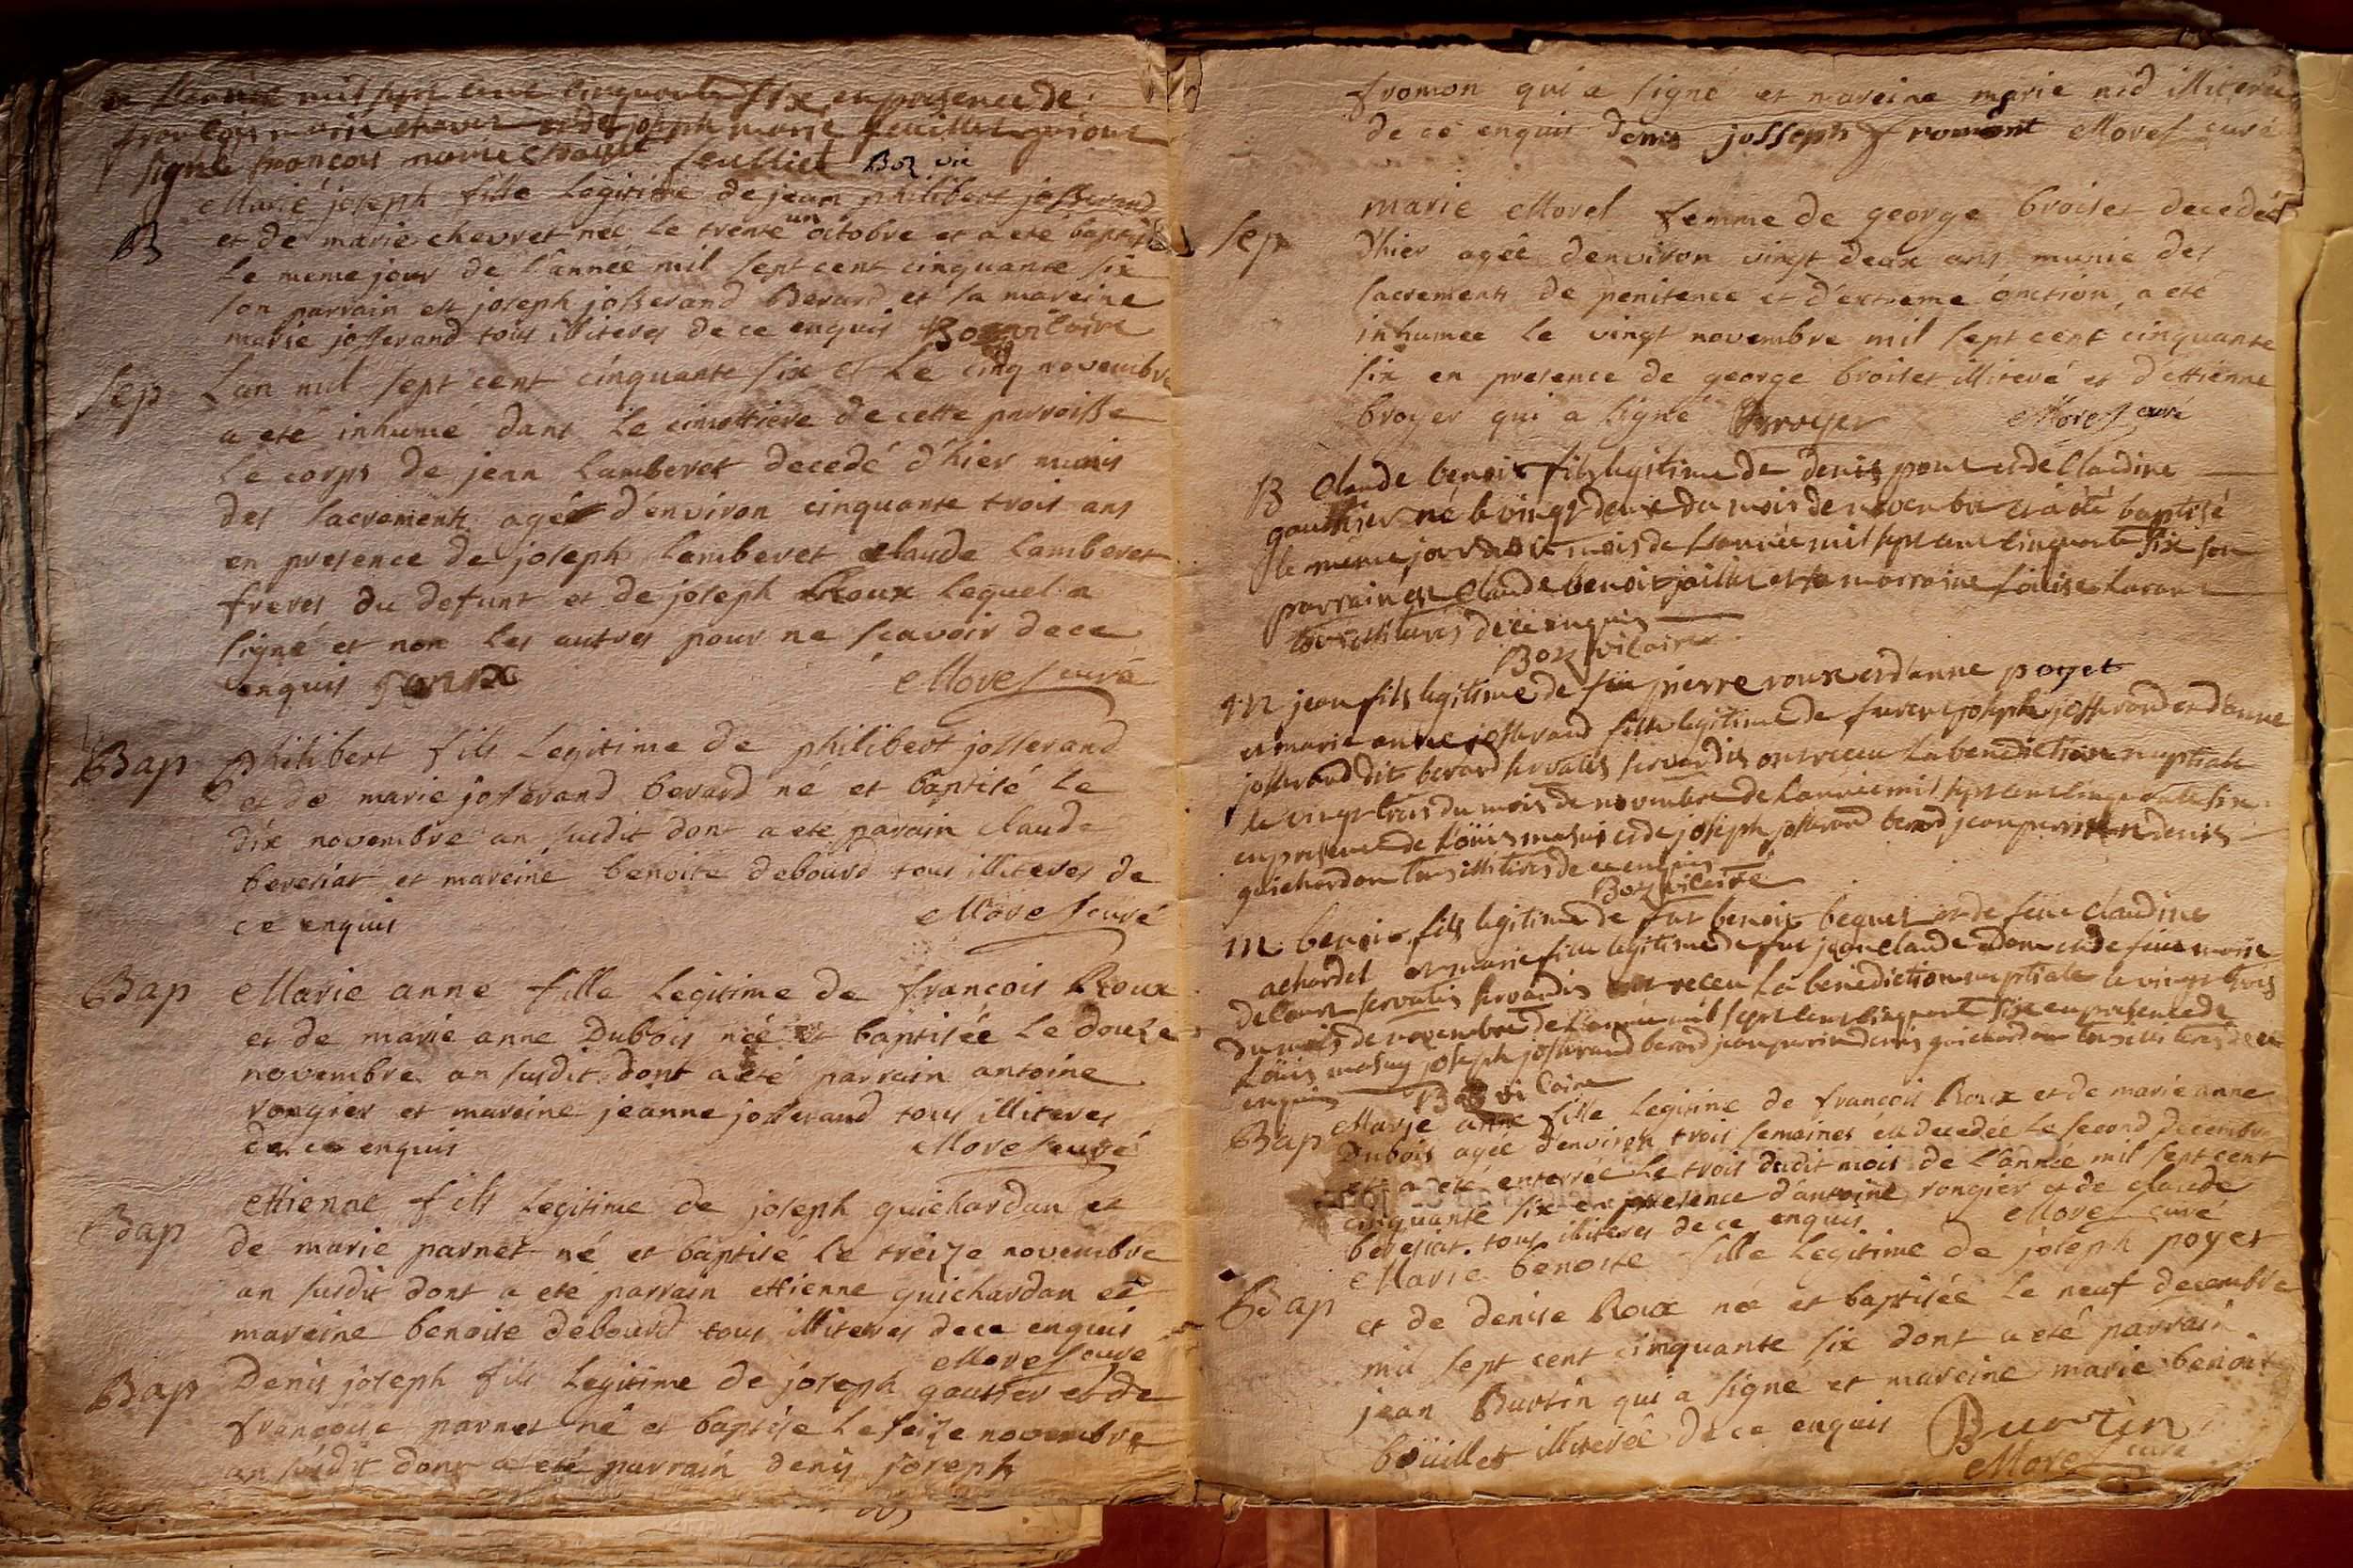 de l'année mil sept cent cinquante six en presence de
françois marie chavet et de joseph marie feuillet qui ont
signé françois marie chavet feulliet Boz vic
B Marie joseph fille legitime de jean philibert josserand
et de marie chevret née le trente un octobre et a eté baptisée
le meme jour de l'année mil sept cent cinquante six
son parrain est joseph josserand Berard et sa mareine
marie josserand tous illiteres de ce enquis Boz vicaire
Sep L'an mil sept cent cinquante six et le cinq novembre
a eté inhumé dans le cimettiere de cette parroisse
le corps de jean Lamberet decedé d'hier munis
des sacrements agé d'environ cinquante trois ans
en presence de joseph Lamberet claude Lamberet
freres du defunt et de joseph Roux lequel a
signé et non les autres pour ne scavoir de ce
enquis roux Morel curé
Bap Philibert fils legitime de philibert josserand
et de marie josserand berard né et baptisé le
dix novembre an susdit dont a eté parain claude
beresiat et mareine benoite debourd tous illiteres de
ce enquis Morel curé
Bap Marie anne fille legitime de francois Roux
et de marie anne Dubois née et baptisée le douze
novembre an susdit dont a eté parrain antoine
rongier et mareine jeanne josserand tous illiteres
de ce enquis Morel curé
Bap ettienne fils legitime de joseph guichardan et
de marie parnet né et baptisé le treize novembre
an susdit dont a eté parrain ettienne guichardan et
mareine benoite debourd tous illiteres de ce enquis
Morel curé
Bap Denis joseph fils legitime de joseph gautier et de
françoise parnet né et baptisé le seize novembre
an susdit dont a eté parrain denis joseph
fromon qui a signé et mareine marie nid illiterée
de ce enquis denis josseph fromont Morel curé
Sep marie Morel femme de george broiset decedée
d'hier agée d'environ vingt deux ans munie des
sacrements de penitence et d'extreme onction, a eté
inhumee le vingt novembre mil sept cent cinquante
six en presence de george broiset illiteré et d'ettienne
broyer qui a signé Broyer Morel curé
B Claude benoit fils legitime de denis pont et de Claudine
gauthier né le vingt deux du mois de novembre et a été baptisé
le même jour mois de l'année mil sept cent cinquante six son
parrain est Claude benoit et sa marraine Loüise
tous illiterés de ce enquis
Boz vicaire
m jean fils legitime de feu pierre roux et d'anne poyet
et marie anne josserand fille legitime de joseph josserand et d'anne
josserand dit berard servatis servandis ont receu la benediction nuptiale
le vingt trois du mois de novembre de l'année mil sept cent cinquante six
en presence de Loüis et de joseph josserand berard jean denis
guichardan tous illiteres de ce enquis
Boz vicaire
m benoit fils legitime de feu benoit bequet et de feue claudine
achardel et marie fille legitime de feu jean claude et de feue marie
servatis servandis ont receu la benediction nuptiale le vingt trois
du mois de novembre de l'année mil sept cent cinquante six en presence de
Loüis joseph josserand berard denis guichardan tous illiteres de ce
enquis Boz vicaire
Bap Marie anne fille legitime de francois Roux et de marie anne
Dubois agée d'environ trois semaines est decedée le second decembre
et a eté enterrée le trois dudit mois de l'année mil sept cent
cinquante six en presence d'antoine rongier et de claude
beresiat tous illiteres de ce enquis Morel curé
Bap Marie benoite fille legitime de joseph poyet
et de denise Roux née et baptisée le neuf decembre
mil sept cent cinquante six dont a eté parrain
jean Burtin qui a signé et mareine marie benoite
boüillet illiterée de ce enquis Burtin
Morel curé